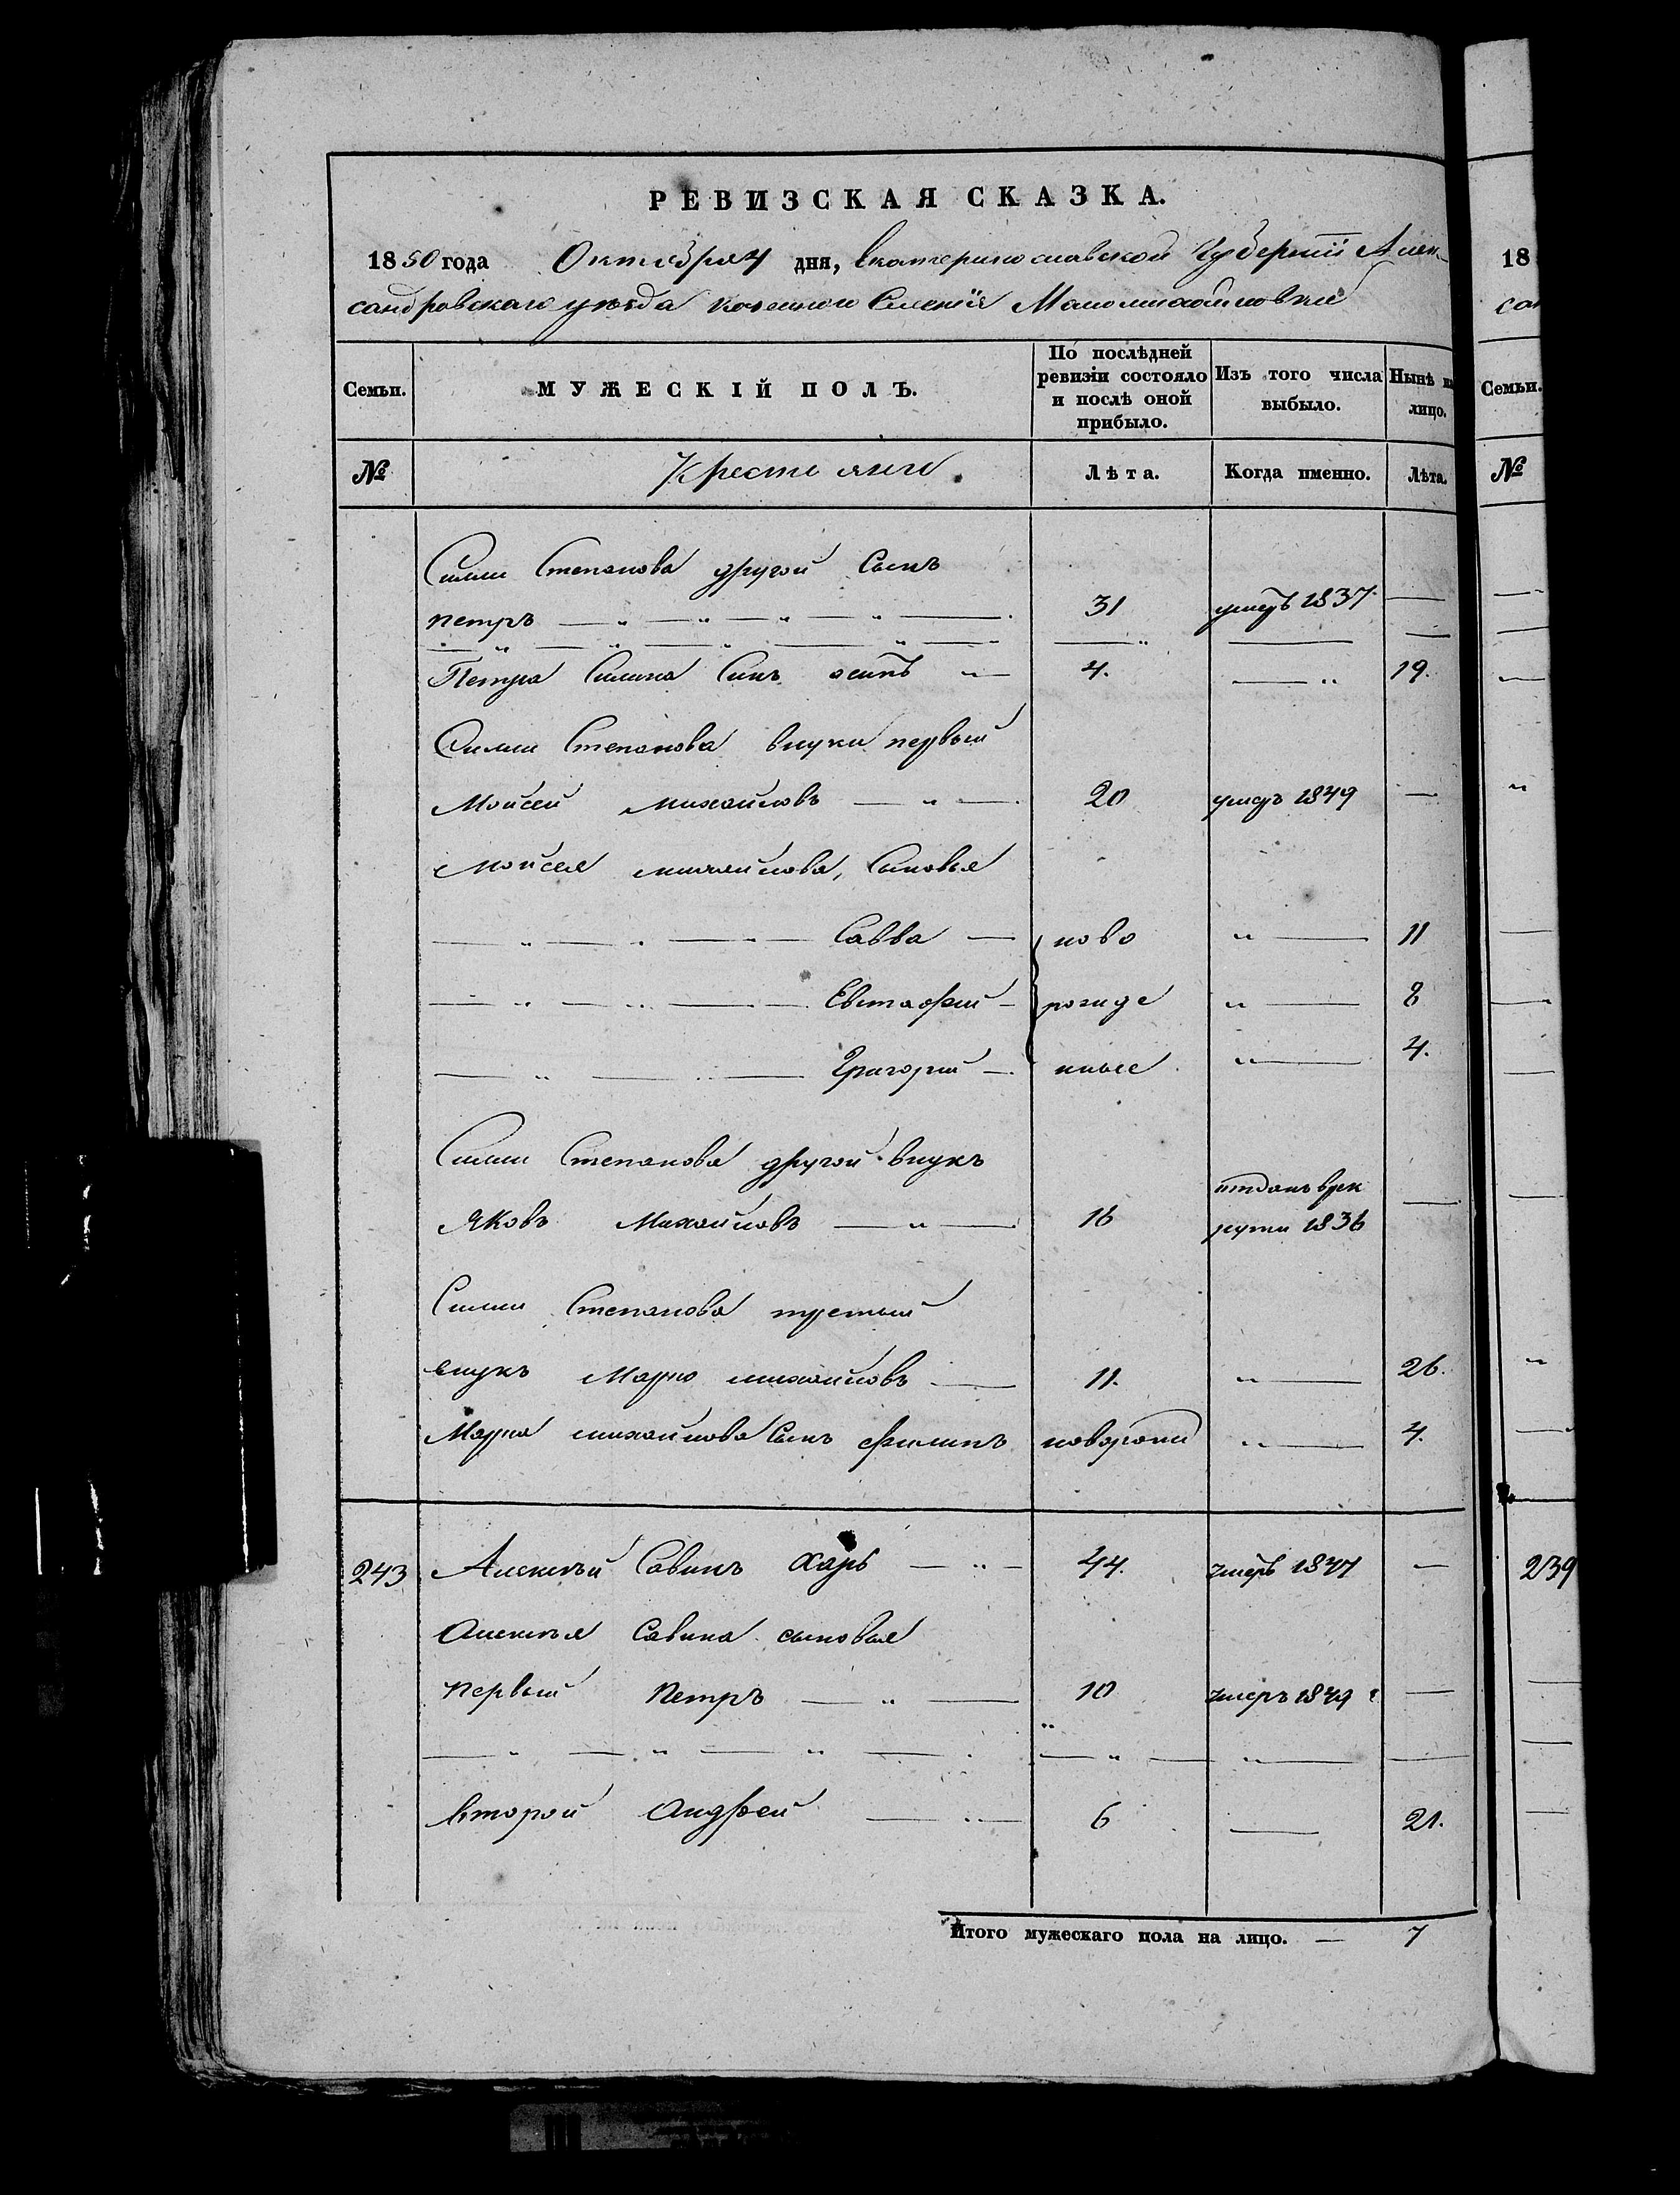 РЕВИЗСКАЯ СКАЗКА.
1850 года Октября 4 дня, Екатеринославской Губерніи Алек-
сандровскаго уезда казеннои Селенія Маломихайловки
Семьи. МУЖЕСКІЙ ПОЛЪ. По послѣдней ревизіи состояло и послѣ оной прибыло. Изъ того числа выбыло. Нынѣ на лицо.
№ Крестьяни Лѣта. Когда именно. Лѣта.
Силы Степанова другой Сынъ
петръ 31 умеръ 1837
Петра Силина Сынъ осипъ 4. 19.
Силы Степанова внуки первый
Мойсей михайловъ 20 умеръ 1849
Мойсея михайлова, Сыновья
Савва ново 11
Евстафий рожде 8
Григорий нные 4.
Силы Степанова другой внукъ
Яковъ Михайловъ 16 отданъ врек
руты 1836
Силы Степанова третий
внукъ Марко михайловъ 11. 26.
Марка михайлова Сынъ филипъ новорожд 4.
243 Алексѣй Савинъ Харь 44. умеръ 1847
Алексѣя Савина сыновья
первый петръ 10 умеръ 1849
второй Андрей 6 21.
Итого мужескаго пола на лицо. — 7
18
сан
Семьи.
№
239